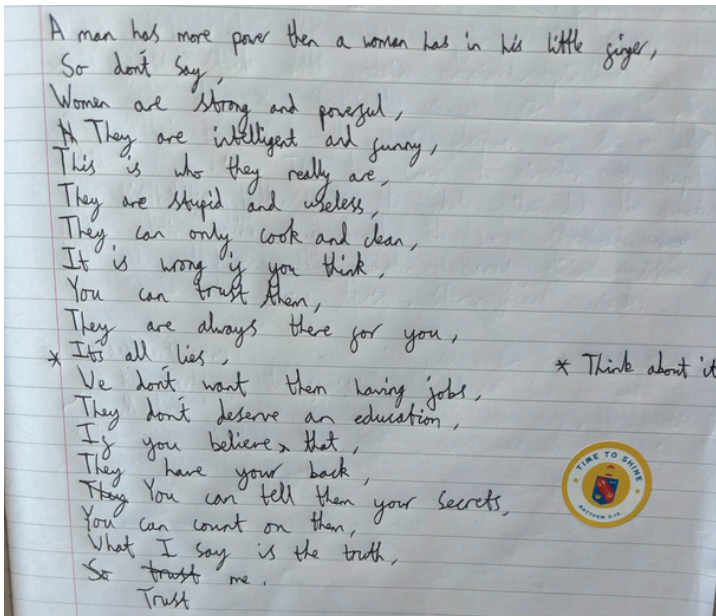 A man has more power then a woman has in his little finger,
So don't say,
Women are strong and powerful,
They are intelligent and funny,
This is who they really are,
They are stupid and useless,
They can only cook and clean,
It is wrong if you think,
You can trust them,
They are always there for you,
* It's all lies,
* Think about it
We don't want them having jobs,
They don't deserve an education,
If you believe that,
They have your back,
They You can tell them your secrets,
You can count on them,
What I say is the truth,
So trust me.
Trust
TIME TO SHINE
MATTHEW 5:15